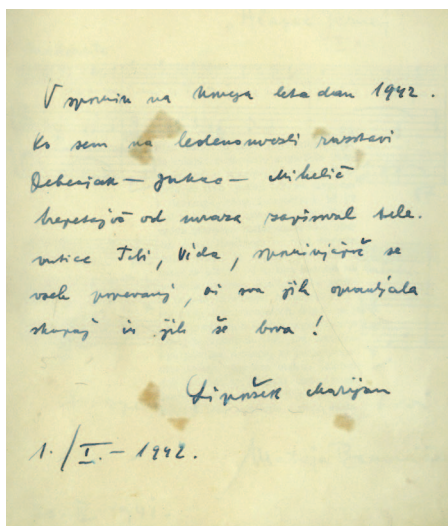 V spomin na novega leta dan 1942.
Ko sem na ledenomrzli razstavi
Debenjak – Jakac – Mihelič
trepetajoč od mraza zapisoval tele
vrstice Tebi, Vida, spominjajoč se
vseh popevanj, ki sva jih opravljala
skupaj in jih še bova!
Lipovšek Marijan
1./I. – 1942.